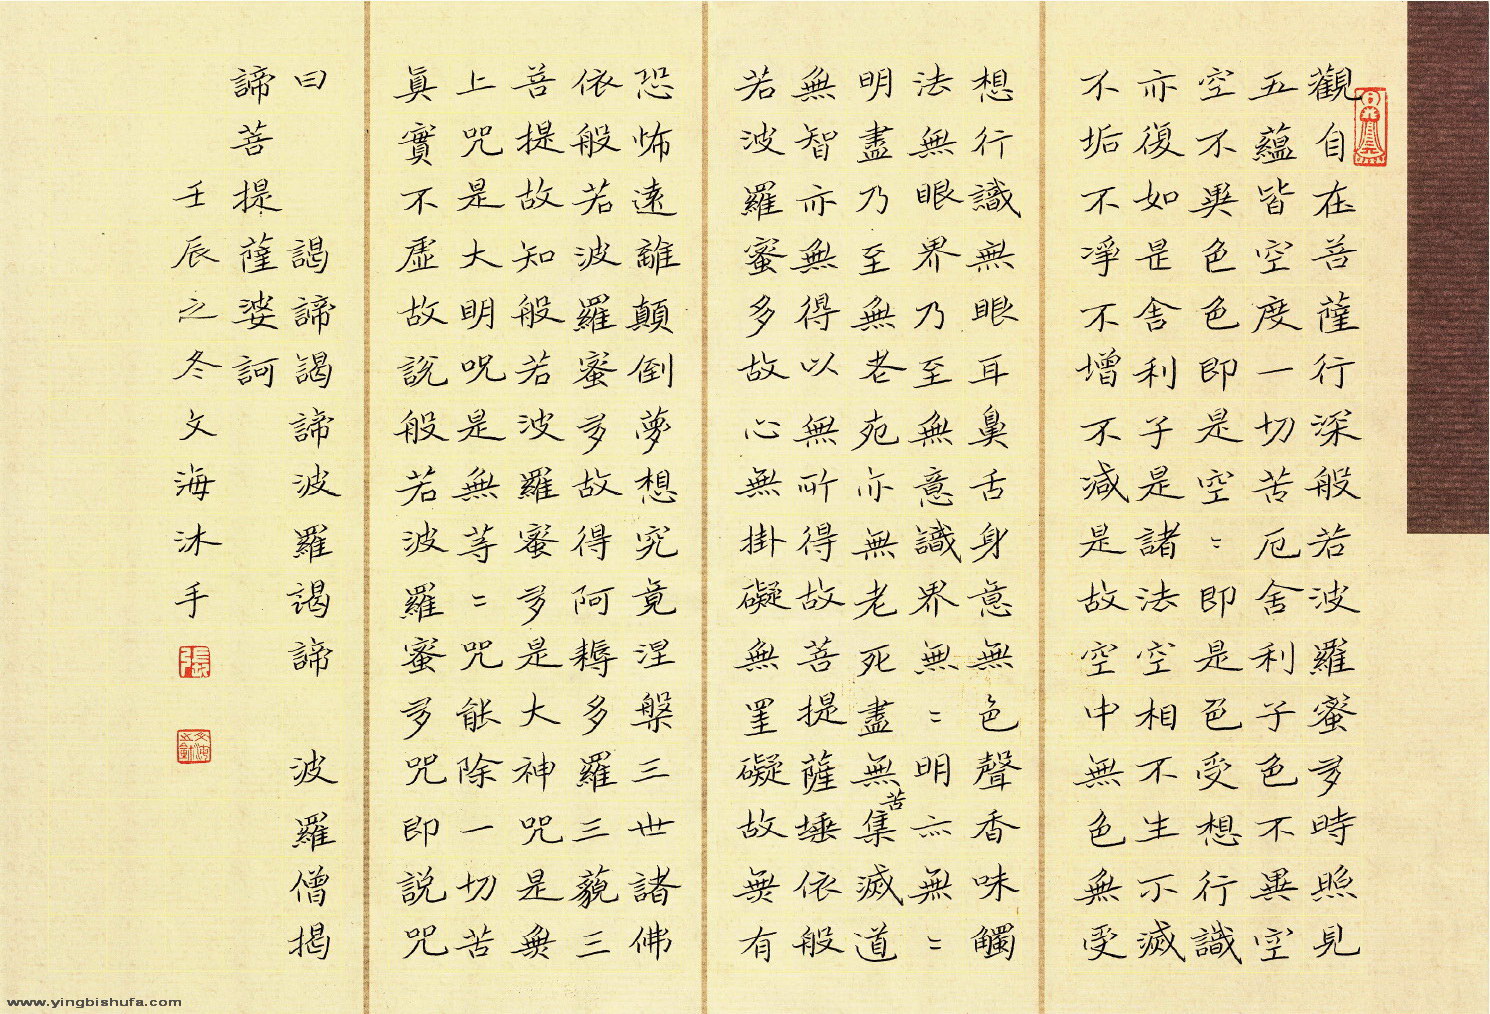 觀自在菩薩行深般若波羅蜜多時照見
五蘊皆空度一切苦厄舍利子色不異空
空不異色色即是空〻即是色受想行識
亦復如是舍利子是諸法空相不生不滅
不垢不淨不增不減是故空中無色無受
想行識無眼耳鼻舌身意無色聲香味觸
法無眼界乃至無意識界無〻明亦無〻
明盡乃至無老死亦無老死盡無苦集滅道
無智亦無得以無所得故菩提薩埵依般
若波羅蜜多故心無掛礙無罣礙故無有
恐怖遠離顛倒夢想究竟涅槃三世諸佛
依般若波羅蜜多故得阿耨多羅三藐三
菩提故知般若波羅蜜多是大神咒是無
上咒是大明咒是無等〻咒能除一切苦
真實不虛故說般若波羅蜜多咒即說咒
曰 謁諦謁諦波羅謁諦 波羅僧揭
諦菩提薩婆訶
壬辰之冬文海沐手
張
www.yingbishufa.com